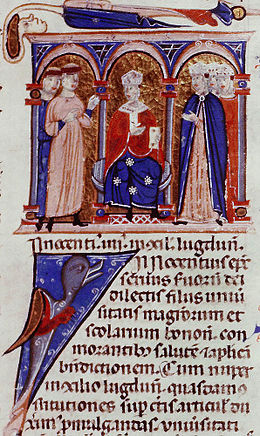 Innocenti' .iiii. in ɔcil. lugdun̄.
NNocentius ep̄c
seruus seruoꝝ dei
dilectis filiis uniu̾
sitatis magistroꝝ et
scolarium bonon̄. com
morantib; salutē et aplicā
bn̄dictionem. Cum nup̲
in ɔcilio lugdun̄. quasdam
stitutiones sup̲ certis articul' du
xim' ꝓmulgandas. uniuersitati